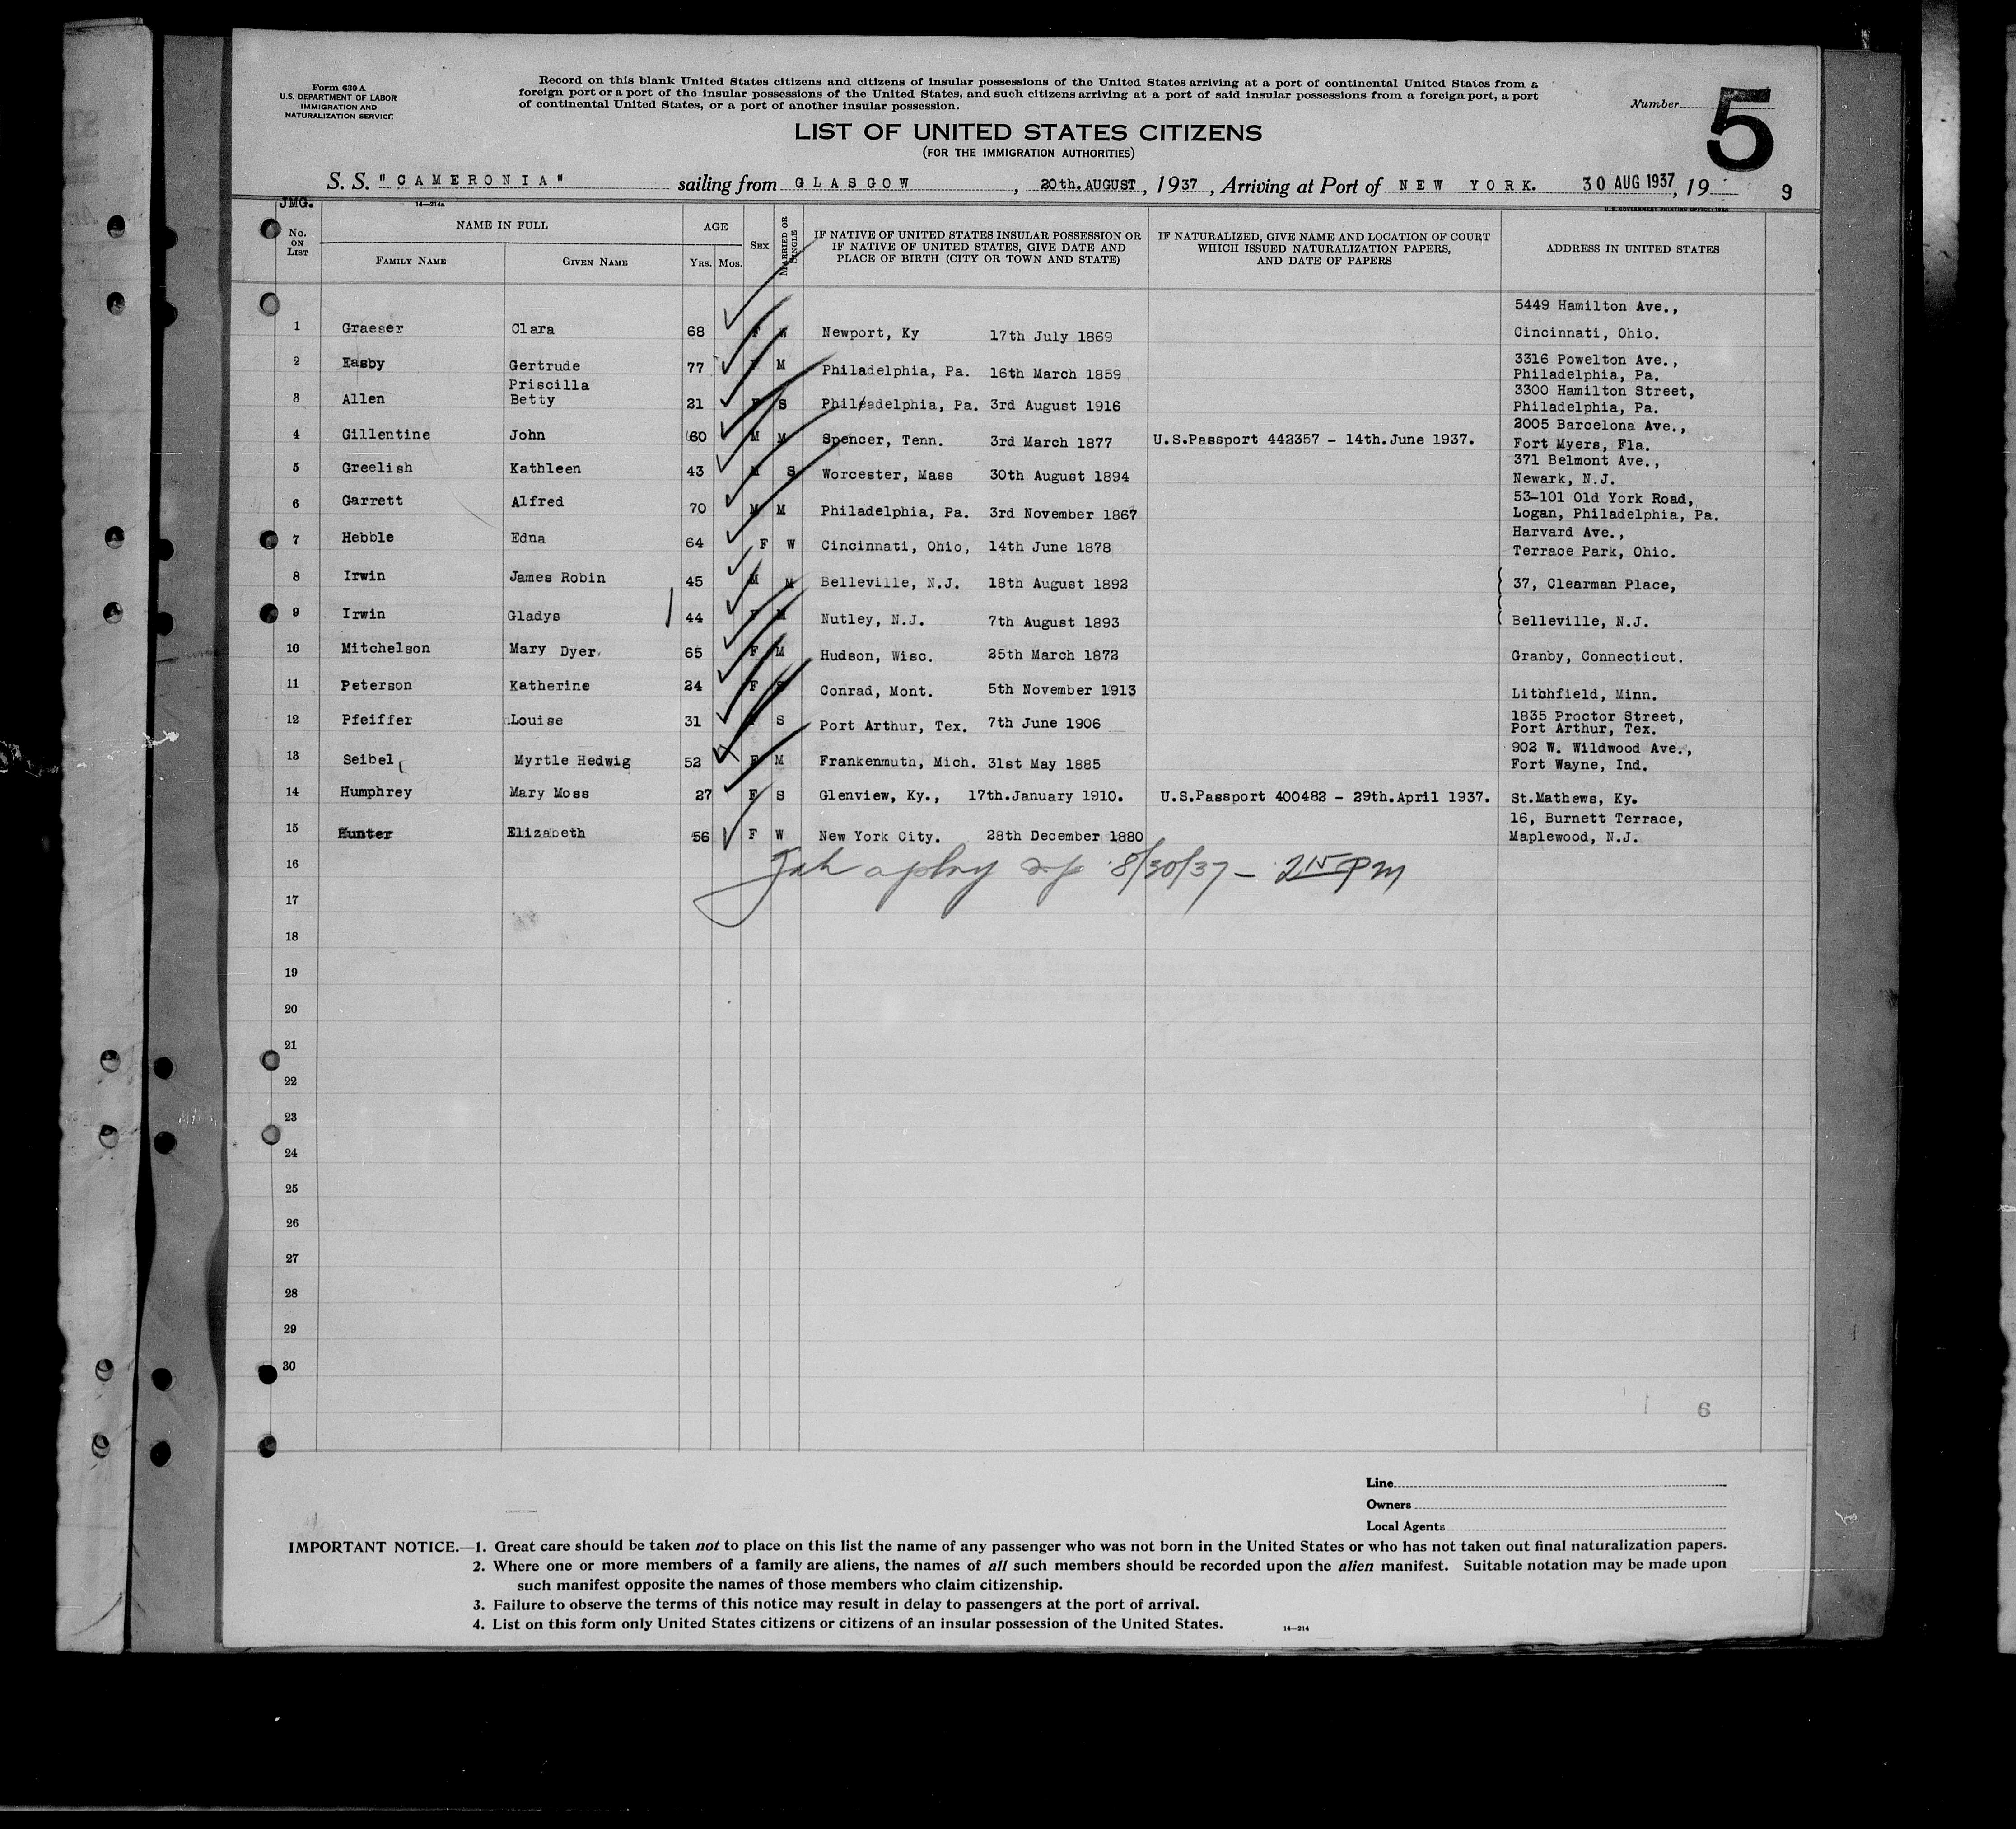 Form 630 A
U.S. DEPARTMENT OF LABOR
IMMIGRATION AND
NATURALIZATION SERVICE
Record on this blank United States citizens and citizens of insular possessions of the United States arriving at a port of continental United States from a
foreign port or a port of the insular possessions of the United States, and such citizens arriving at a port of said insular possessions from a foreign port, a port
of continental United States, or a port of another insular possession.
Number 5
LIST OF UNITED STATES CITIZENS
(FOR THE IMMIGRATION AUTHORITIES)
S. S. "CAMERONIA" sailing from GLASGOW, 20th. AUGUST, 1937, Arriving at Port of NEW YORK. 30 AUG 1937, 19 9
JMG. 14—214a
No. ON LIST NAME IN FULL FAMILY NAME GIVEN NAME AGE YRS. MOS. SEX MARRIED OR SINGLE IF NATIVE OF UNITED STATES INSULAR POSSESSION OR IF NATIVE OF UNITED STATES, GIVE DATE AND PLACE OF BIRTH (CITY OR TOWN AND STATE) IF NATURALIZED, GIVE NAME AND LOCATION OF COURT WHICH ISSUED NATURALIZATION PAPERS, AND DATE OF PAPERS ADDRESS IN UNITED STATES
5449 Hamilton Ave.,
1 Graeser Clara 68 F W Newport, Ky 17th July 1869 Cincinnati, Ohio.
2 Easby Gertrude 77 F M Philadelphia, Pa. 16th March 1859 3316 Powelton Ave.,
Priscilla Philadelphia, Pa.
3 Allen Betty 21 F S Phileadelphia, Pa. 3rd August 1916 3300 Hamilton Street,
Philadelphia, Pa.
4 Gillentine John 60 M M Spencer, Tenn. 3rd March 1877 U.S.Passport 442357 - 14th.June 1937. 2005 Barcelona Ave.,
Fort Myers, Fla.
5 Greelish Kathleen 43 M S Worcester, Mass 30th August 1894 371 Belmont Ave.,
Newark, N.J.
6 Garrett Alfred 70 M M Philadelphia, Pa. 3rd November 1867 53-101 Old York Road,
Logan, Philadelphia, Pa.
7 Hebble Edna 64 F W Cincinnati, Ohio, 14th June 1878 Harvard Ave.,
Terrace Park, Ohio.
8 Irwin James Robin 45 M M Belleville, N.J. 18th August 1892 37, Clearman Place,
9 Irwin Gladys 44 F M Nutley, N.J. 7th August 1893 Belleville, N.J.
10 Mitchelson Mary Dyer 65 F M Hudson, Wisc. 25th March 1872 Granby, Connecticut.
11 Peterson Katherine 24 F S Conrad, Mont. 5th November 1913 Litchfield, Minn.
12 Pfeiffer Louise 31 F S Port Arthur, Tex. 7th June 1906 1835 Proctor Street,
Port Arthur, Tex.
13 Seibel Myrtle Hedwig 52 F M Frankenmuth, Mich. 31st May 1885 902 W. Wildwood Ave.,
Fort Wayne, Ind.
14 Humphrey Mary Moss 27 F S Glenview, Ky., 17th.January 1910. U.S.Passport 400482 - 29th.April 1937. St.Mathews, Ky.
15 Hunter Elizabeth 56 F W New York City. 28th December 1880 16, Burnett Terrace,
Maplewood, N.J.
16 8/30/37 - 2 15 PM
17
18
19
20
21
22
23
24
25
26
27
28
29
30
6
Line
Owners
Local Agents
IMPORTANT NOTICE.—1. Great care should be taken not to place on this list the name of any passenger who was not born in the United States or who has not taken out final naturalization papers.
2. Where one or more members of a family are aliens, the names of all such members should be recorded upon the alien manifest. Suitable notation may be made upon
such manifest opposite the names of those members who claim citizenship.
3. Failure to observe the terms of this notice may result in delay to passengers at the port of arrival.
4. List on this form only United States citizens or citizens of an insular possession of the United States.
14—214